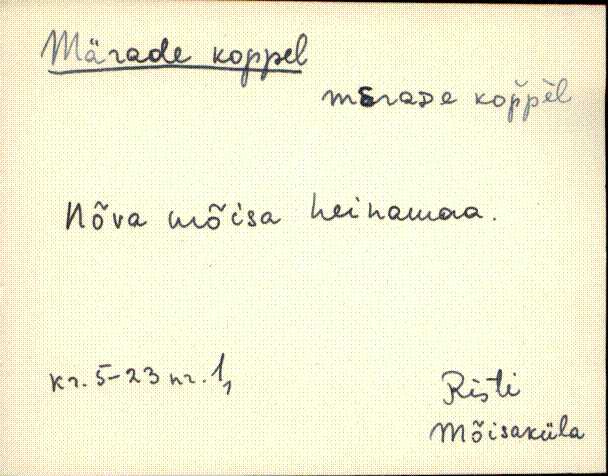 Märade koppel
mɛraᴅe kop̆pèl
Nõva mõisa heinamaa.
kr. 5-23 nr. 1,
Risti
Mõisaküla